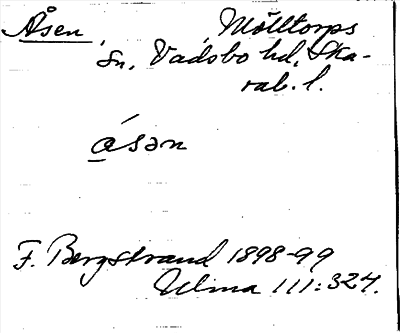 Åsen, Mölltorps
sn, Vadsbo hd, Ska-
rab. l.
åsən
F. Bergstrand 1898-99
Ulma 111:324.